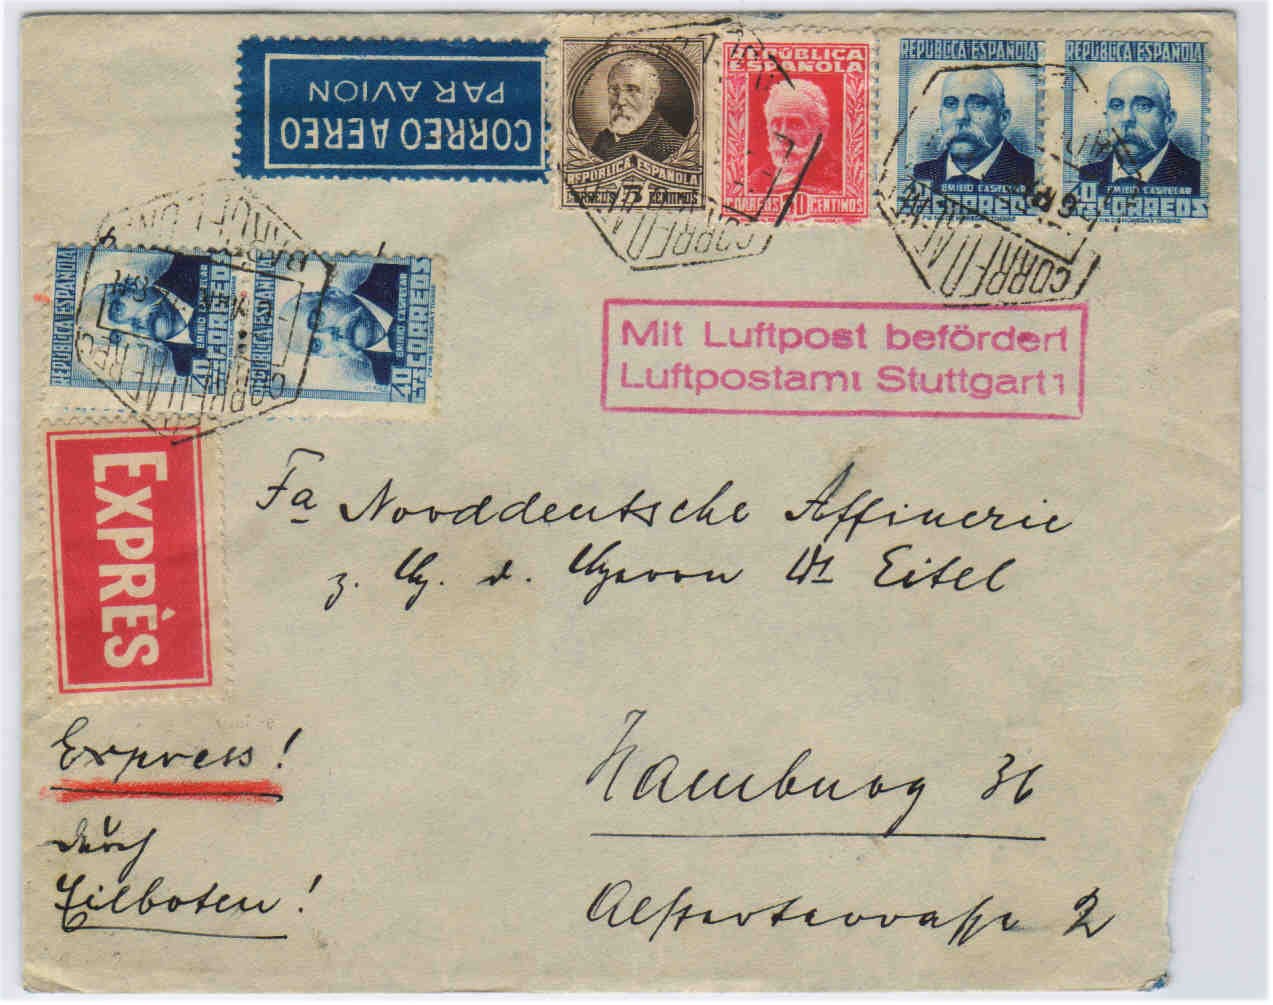 CORREO AEREO
PAR AVION
REPÚBLICA ESPAÑOLA
CORREOS 75 CENTIMOS
REPÚBLICA
ESPAÑOLA
CORREOS 30 CENTIMOS
REPÚBLICA ESPAÑOLA
EMILIO CASTELAR
CORREOS
REPÚBLICA ESPAÑOLA
EMILIO CASTELAR
40 CORREOS
CORREO AEREO
CORREO AEREO
BARCELONA
CORREO AEREO
REPÚBLICA ESPAÑOLA
EMILIO CASTELAR
40 CORREOS
REPÚBLICA ESPAÑOLA
EMILIO CASTELAR
40 CORREOS
Mit Luftpost befördert
Luftpostamt Stuttgart 1
EXPRÈS
Fa Norddeutsche Affinerie
z. Hd. d. Herrn Dr Eitel
Hamburg 36
Alsterterrasse 2
Express!
durch
Eilboten!